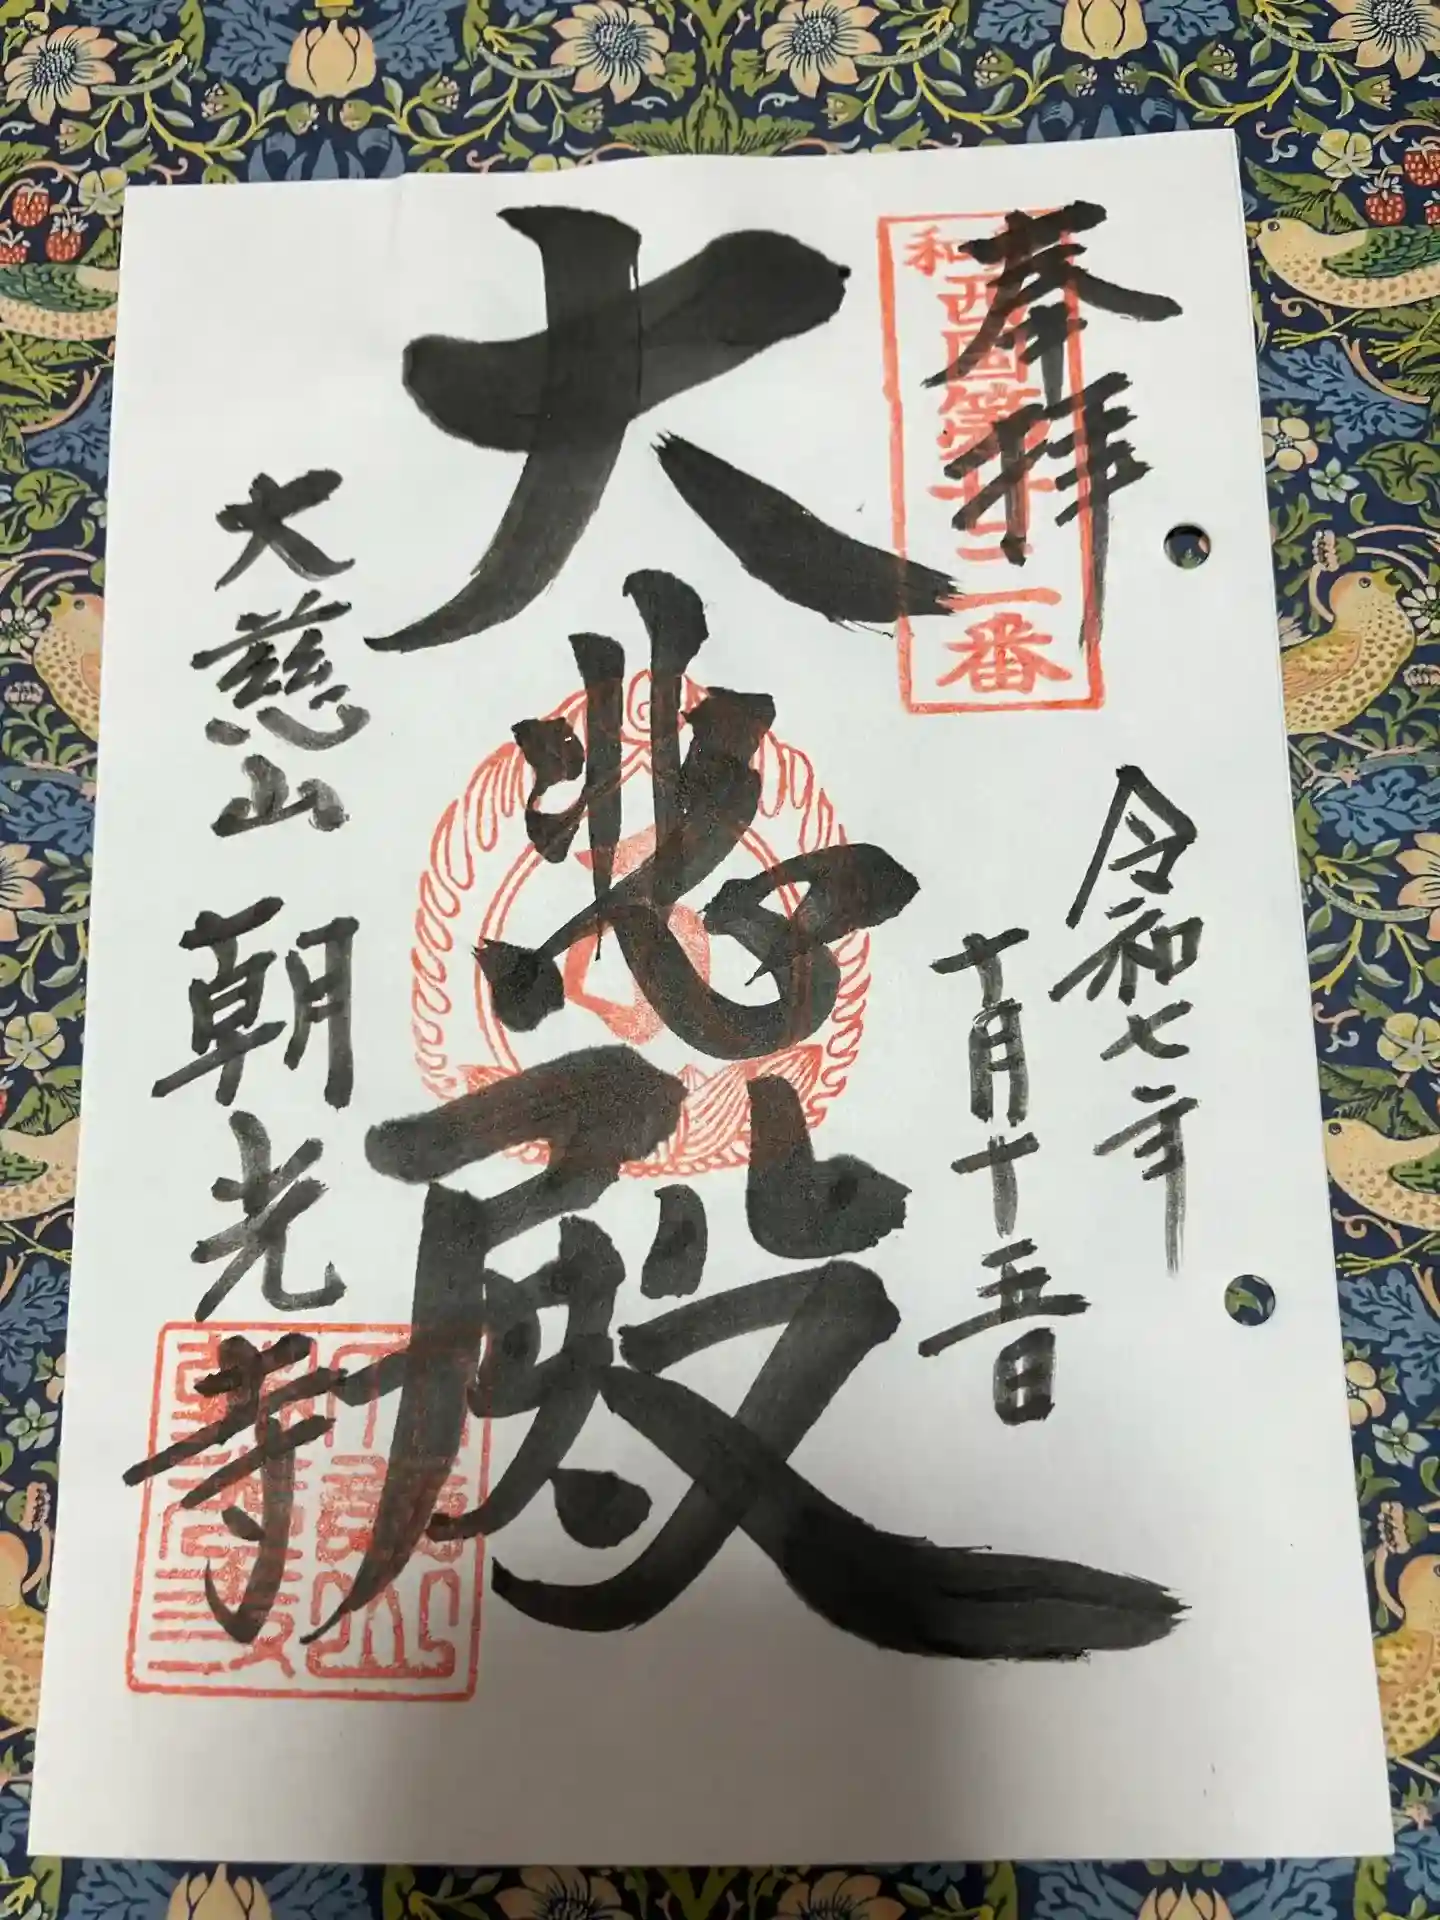 奉拝
和西国第十二番
令和七年
十月十五日
大悲殿
大慈山 朝光寺